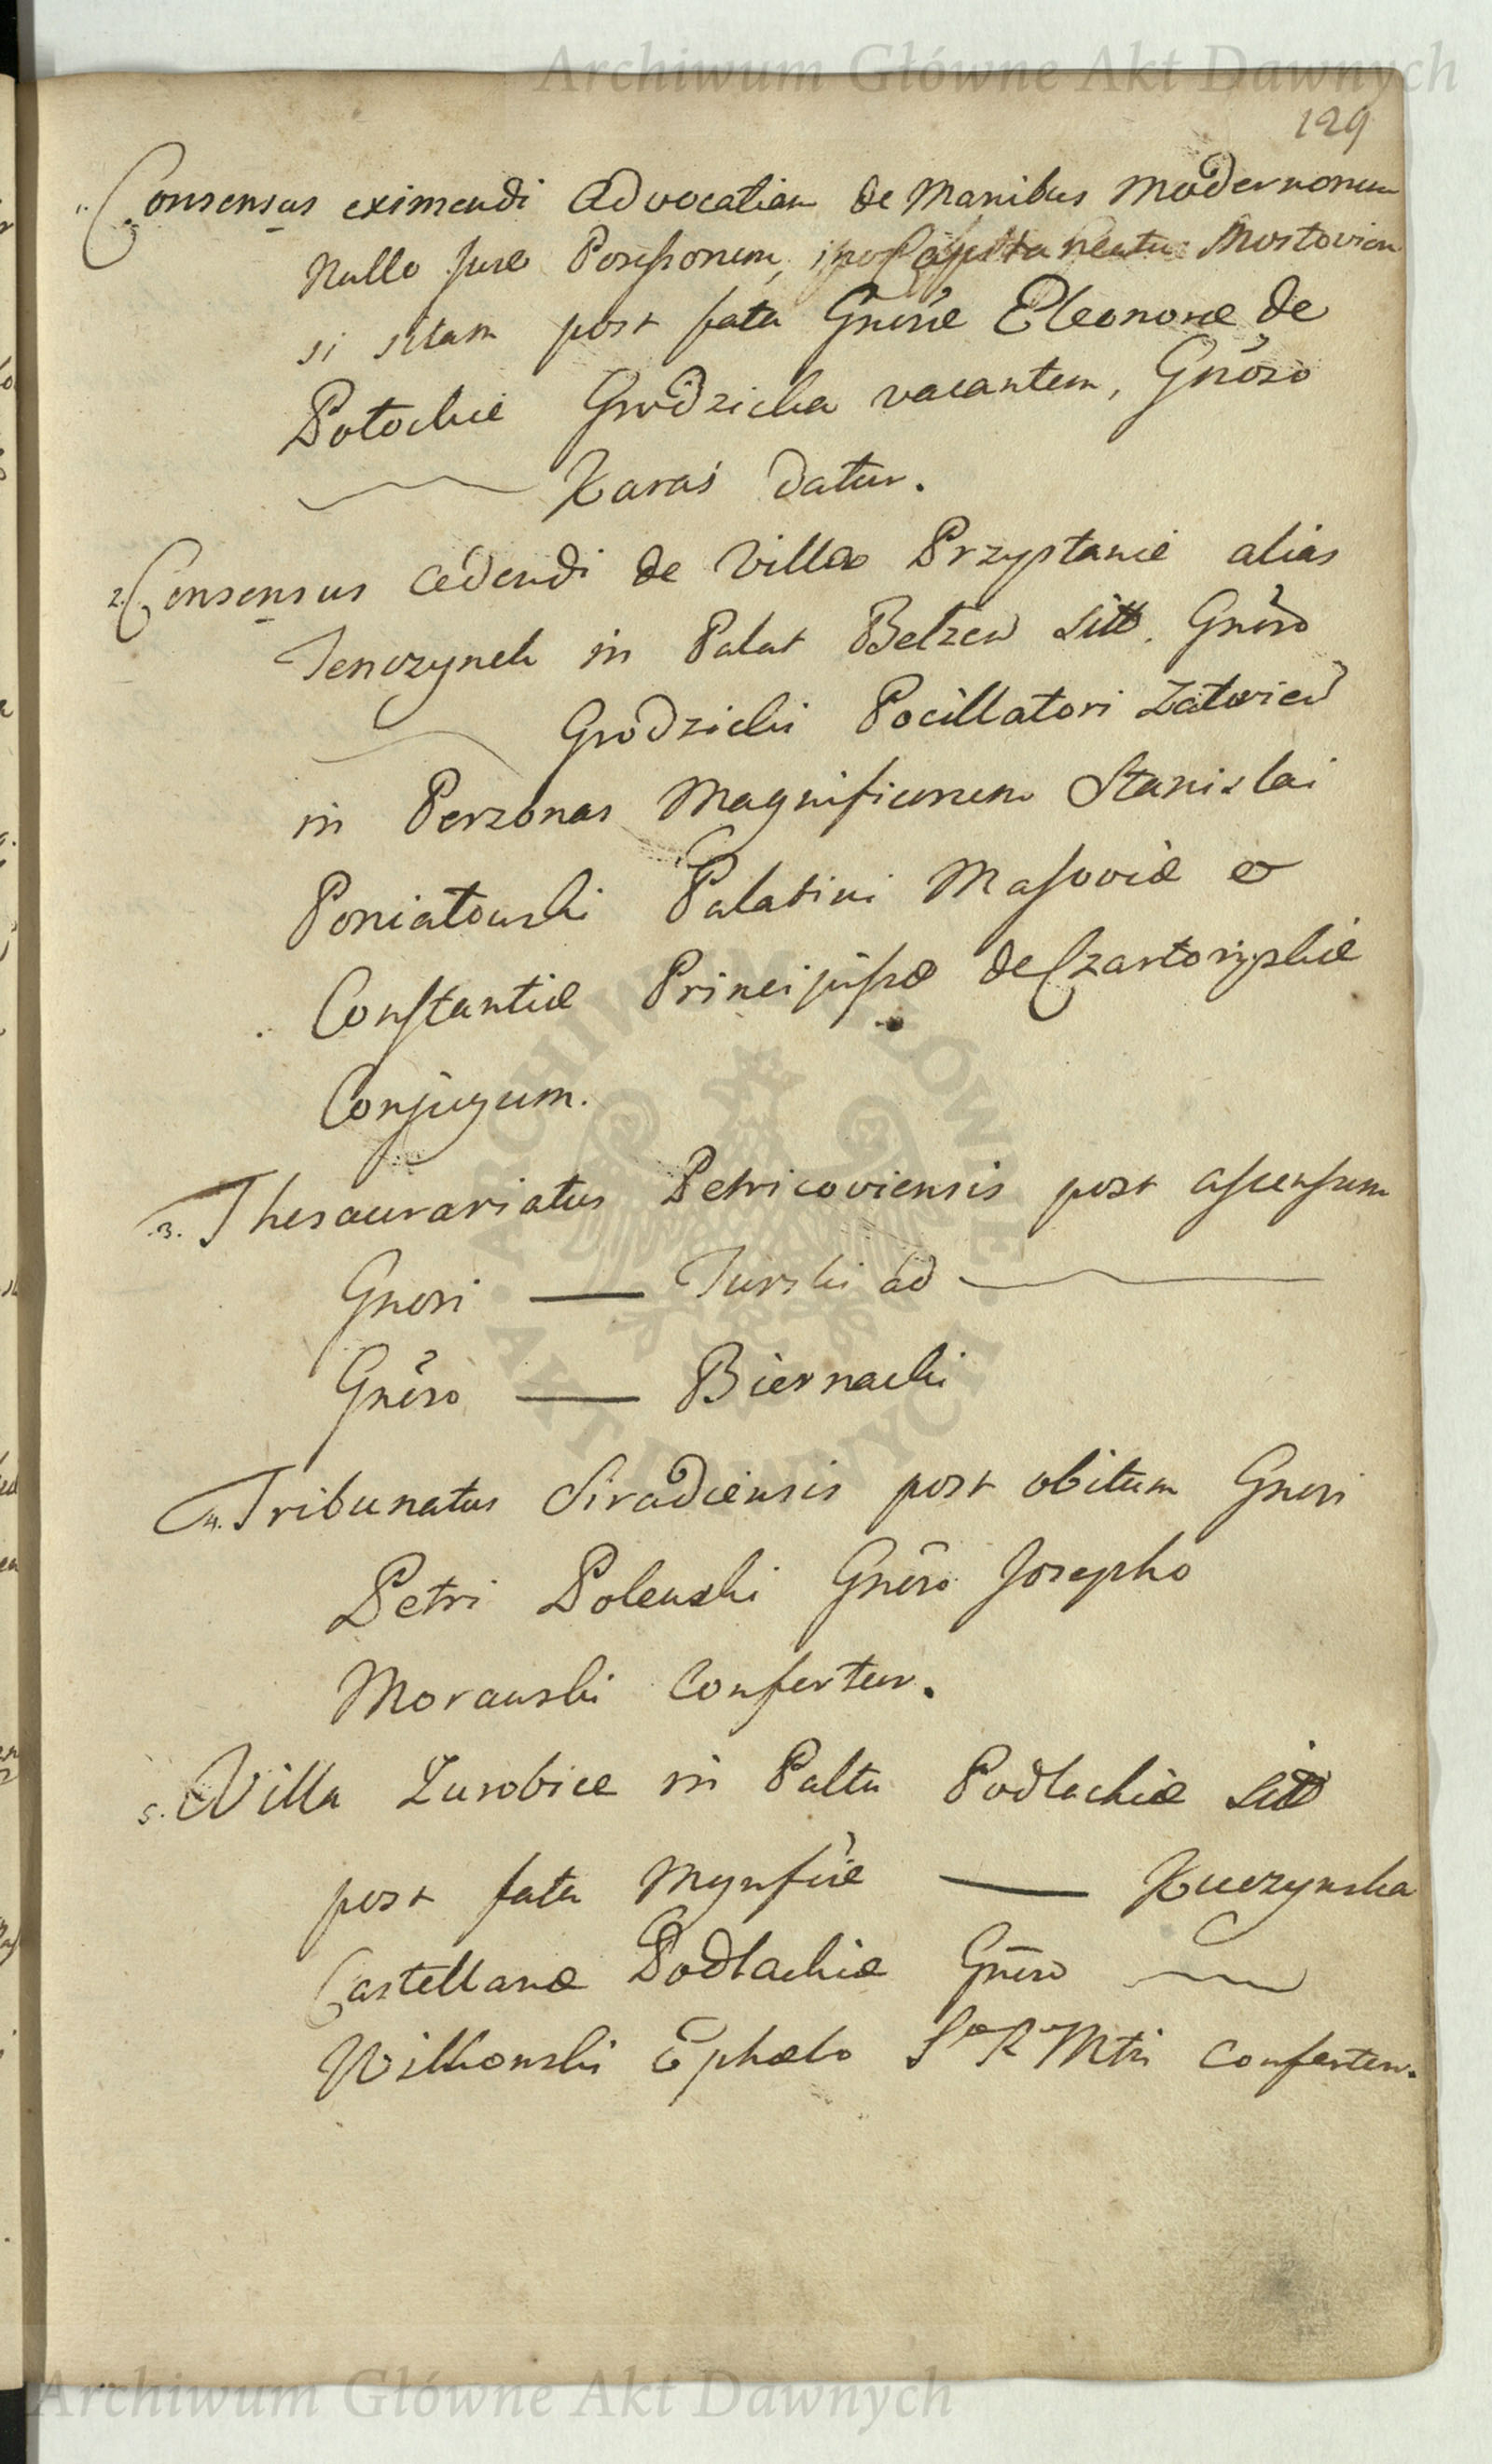 Archiwum Główne Akt Dawnych
129
1. Consensus eximendi Advocatiam de Manibus Modernorum
Nullo Jure Possessorum, Capitaneatu Mostovien
si sitam post fata Gnosae Eleonorae de
Potockie Grodzicka vacantem, Gnoso
Karaś datur.
2. Consensus cedendi de Villa Przystanie alias
Jenczynek in Palat Belzen Sitt. Gnoso
Grodzicki Pocillatori Zatorien
in Perzonas Magnificorum Stanislai
Poniatowski Palatini Masoviae et
Constantiae Principissae de Czartoryskie
Conjugum.
3. Thesaurariatus Petricoviensis post ascensum
Gnosi — Turski ad
Gnoso — Biernacki
4. Tribunatus Siradiensis post obitum Gnosi
Petri Polewski Gnoso Josepho
Morawski Confertur.
5. Villa Zurobice in Paltu Podlachiae Sitt
post fata Mgnficae — Kuczynska
Castellanae Podlachiae Gnoso
Wilkonski Ephaebo S R Mtis confertur.
ARCHIWUM GŁÓWNE AKT DAWNYCH
Archiwum Główne Akt Dawnych